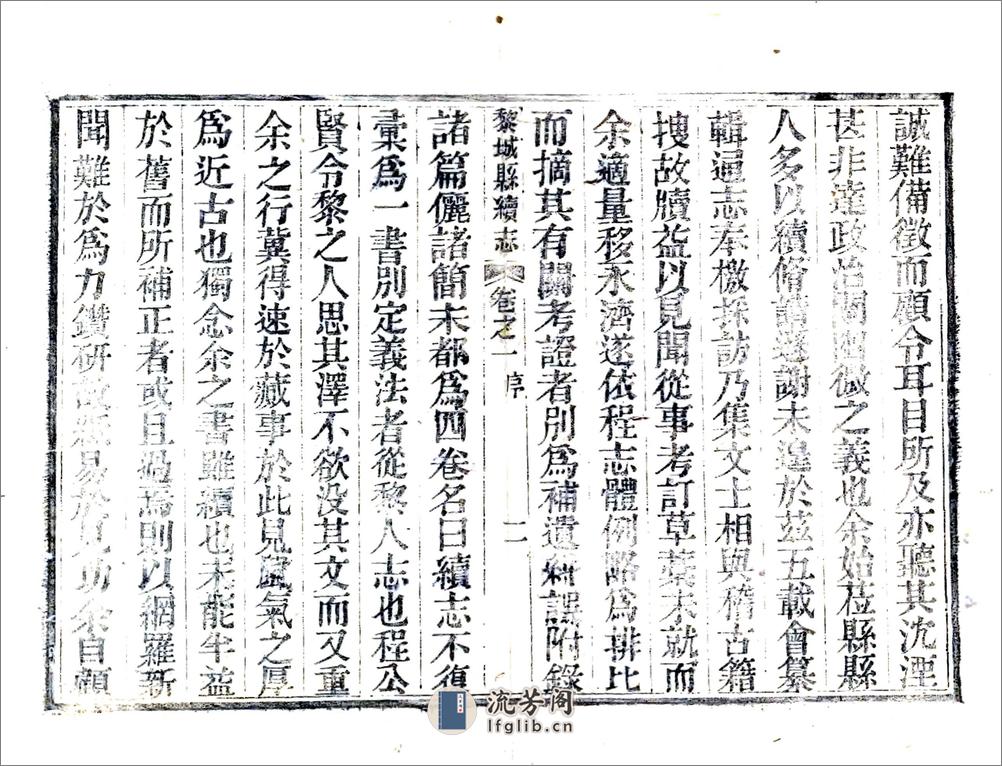 誠難備徵而顧令耳目所及亦聽其沈湮
甚非達政治闡微之義也余始莅縣縣
人多以續脩請遜謝未遑於茲五載會纂
輯通志奉檄採訪乃集文士相與稽古籍
搜故牘益以見聞從事考訂草藁未就而
余適量移永濟遂依程志體例略爲排比
而摘其有關考證者別爲補遺糾誤附錄
黎城縣續志 卷之一 序 二
諸篇儷諸簡末都爲四卷名曰續志不復
彙爲一書別定義法者從黎人志也程公
賢令黎之人思其澤不欲没其文而又重
余之行冀得速於蕆事於此見風氣之厚
爲近古也獨念余之書雖續也未能半益
於舊而所補正者或且過焉則以網羅新
聞難於爲力鑽研故紙易於見功余自顧
流芳阁
lfglib.cn